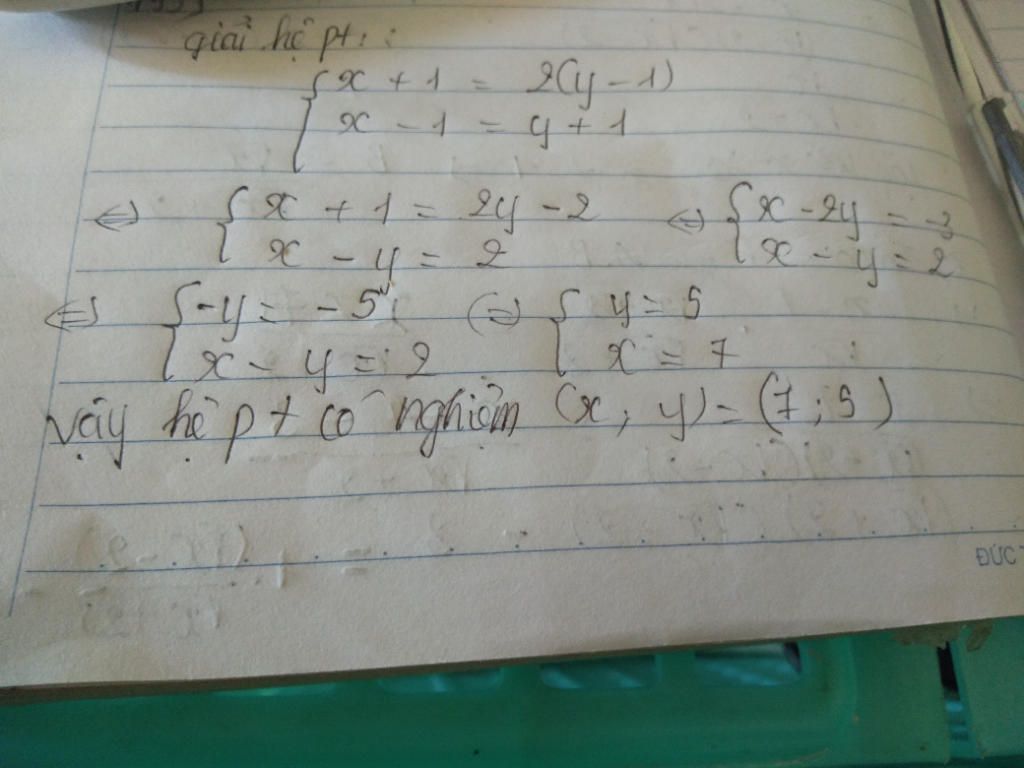 giải hệ pt :
{ x + 1 = 2(y - 1)
x - 1 = y + 1
⇔ { x + 1 = 2y - 2 ⇔ { x - 2y = -3
x - y = 2 x - y = 2
⇔ { -y = -5 ⇔ { y = 5
x - y = 2 x = 7
Vậy hệ pt có nghiệm (x ; y) = (7 ; 5)
ĐỨC